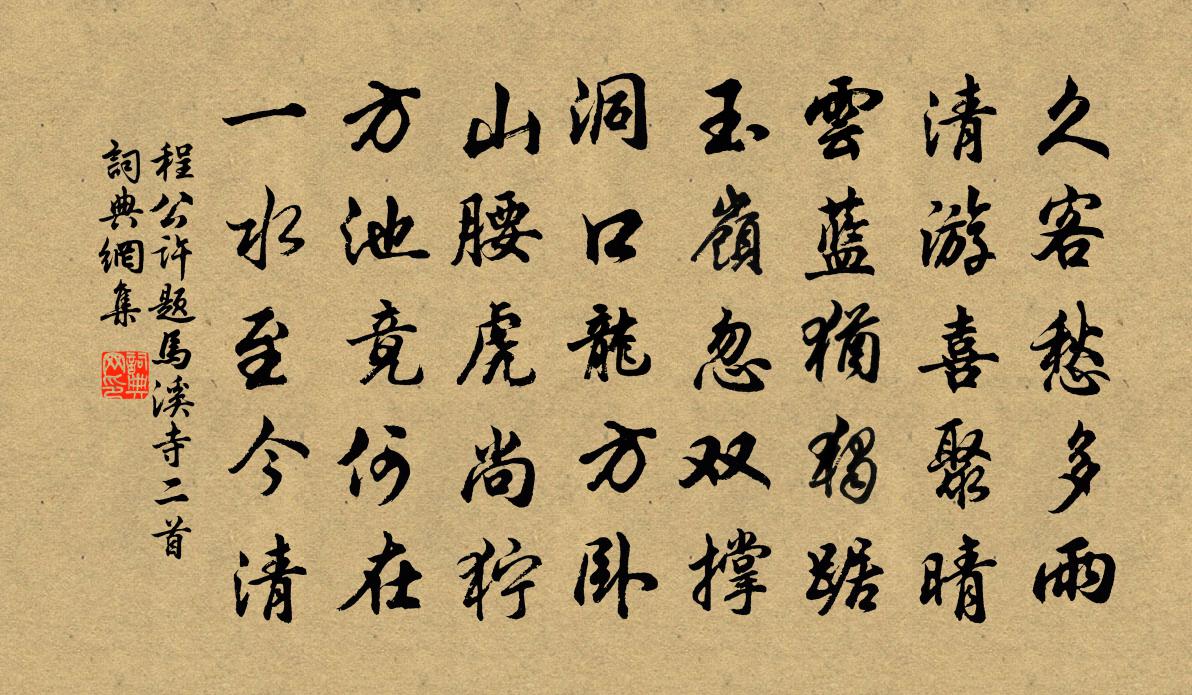 久客愁多雨
清游喜聚晴
雲藍猶獨踞
玉嶺忽双撑
洞口龍方卧
山腰虎尚狞
方池竟何在
一水至今清
程公许题馬溪寺二首
詞典網集